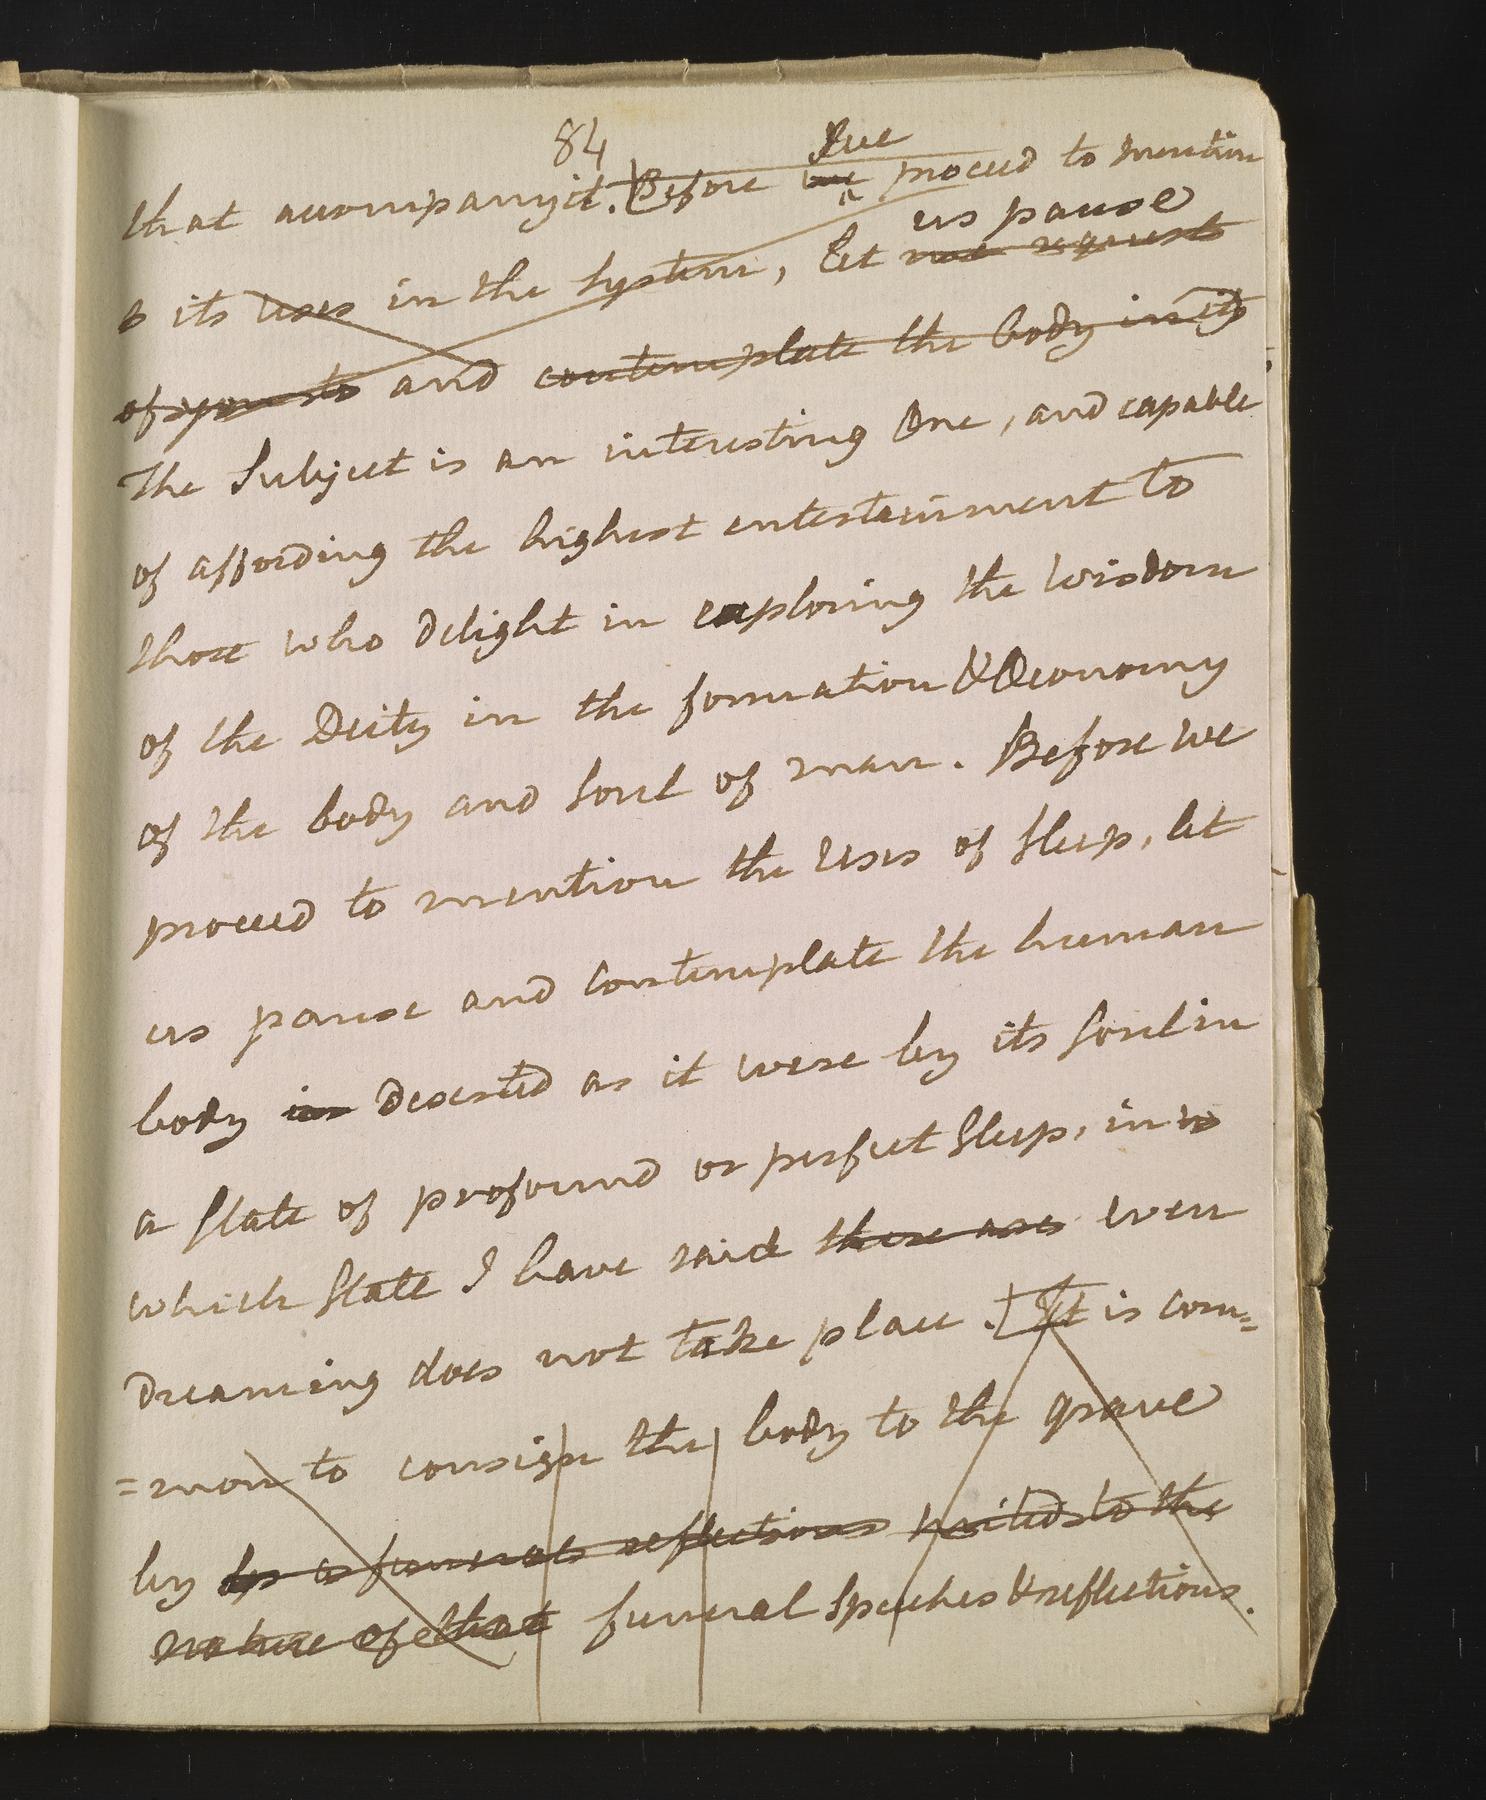 84
that accompany it. Before we proceed to mention
its uses in the System, let us pause
me request
and contemplate the body in its
The Subject is an interesting One, and capable
of affording the highest entertainment to
those who delight in exploring the wisdom
of the Deity in the formation & Oeconomy
of the body and Soul of man. Before we
proceed to mention the Uses of Sleep, let
us pause and contemplate the human
body in deserted as it were by its Soul in
a State of profound or perfect Sleep, in w
which State I have said there are even
dreaming does not take place. [It is com=
=mon to consign the body to the grave
by funerals reflections suited to the
nature of that funeral Speeches & reflections.